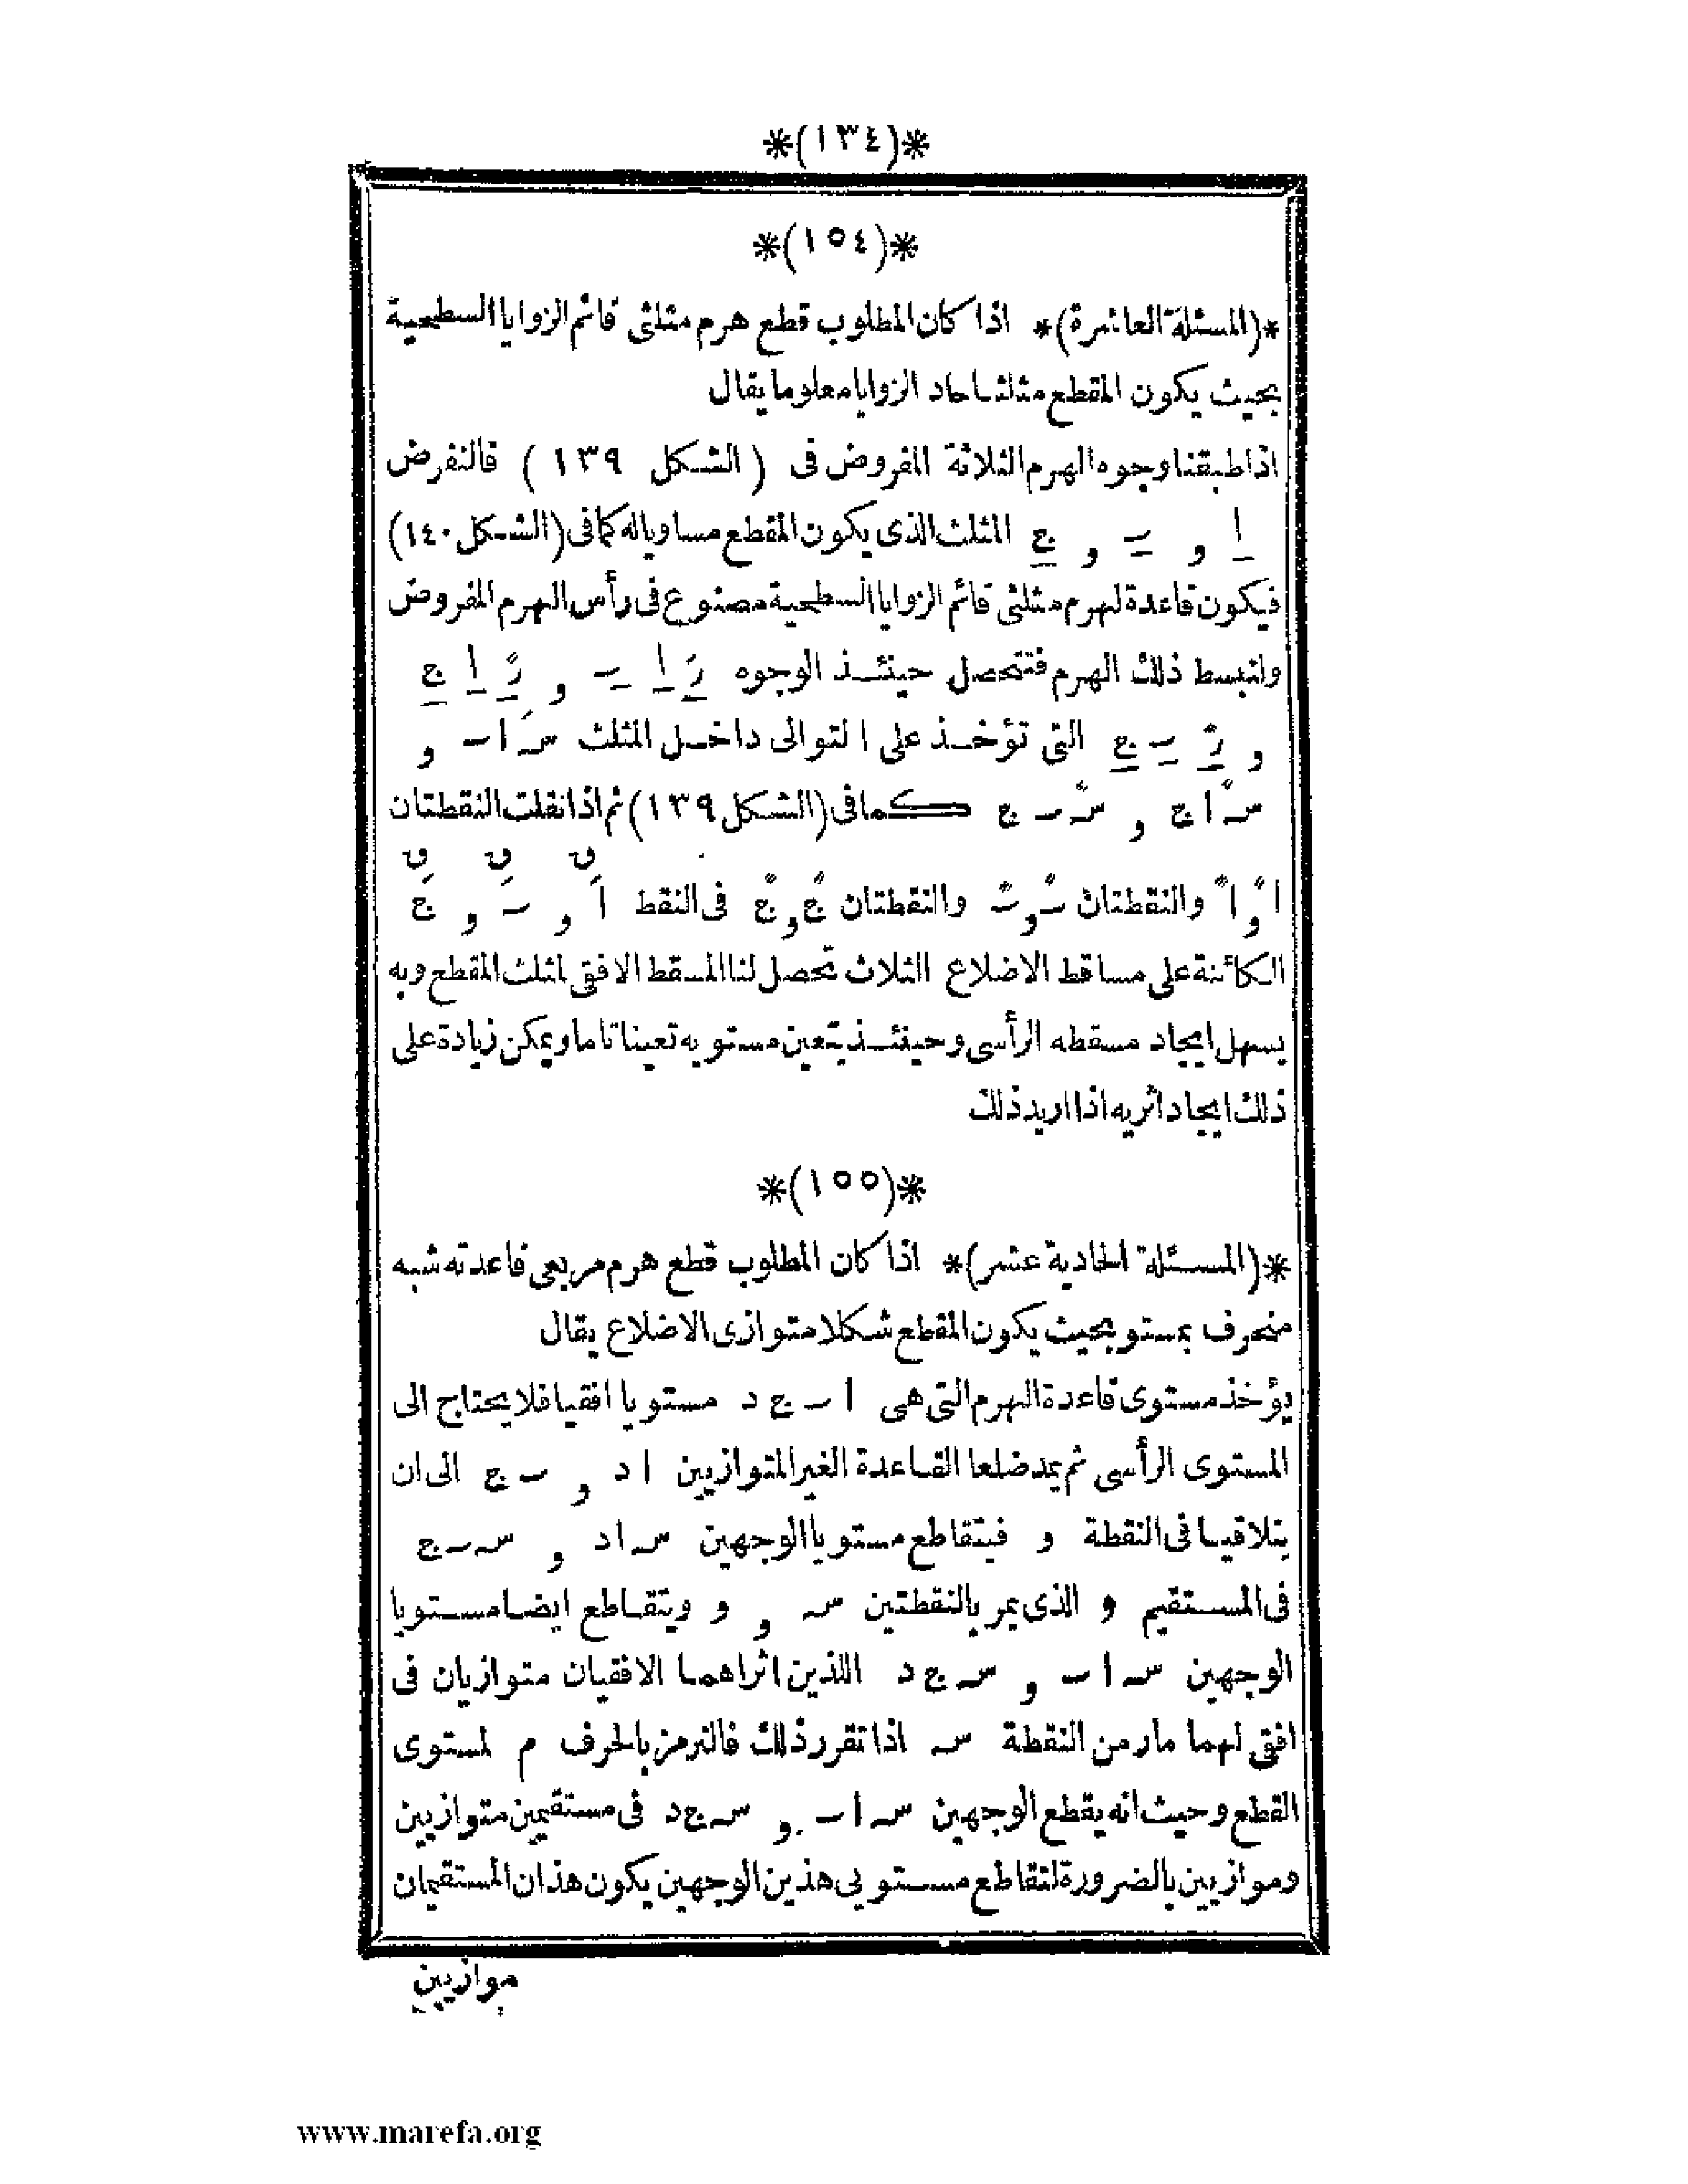 *(١٣٤)*
*(١٥٤)*
*(المسئلة العاشرة)* اذا كان المطلوب قطع هرم مثلثى قائم الزوايا السطحية
بحيث يكون المقطع مثلثا حاد الزوايا معلوما يقال
اذا طبقنا وجوه الهرم الثلاثة المفروض فى (الشكل ١٣٩) فالنفرض
ا و ب و ج المثلث الذى يكون المقطع مساويا له كما فى (الشكل ١٤٠)
فيكون قاعدة لهرم مثلثى قائم الزوايا السطحية مصنوع فى رأس الهرم المفروض
ولنبسط ذلك الهرم فتتحصل حينئذ الوجوه رَ ا ب و رً ا ج
و رّ ب ج التى تؤخذ على التوالى داخل المثلث سَ ا ب و
سً ا ج و سّ ب ج كما فى (الشكل ١٣٩) ثم اذا نقلت النقطتان
ا و ا والنقطتان ب و ب والنقطتان ج و ج فى النقط اَ و بَ و جَ
الكائنة على مساقط الاضلاع الثلاث تحصل لنا المسقط الافقى لمثلث المقطع وبه
يسهل ايجاد مسقطه الرأسى وحينئذ يتعين مستويه تعينا تاما ويمكن زيادة على
ذلك ايجاد اثريه اذا اريد ذلك
*(١٥٥)*
*(المسئلة الحادية عشر)* اذا كان المطلوب قطع هرم مربعى قاعدته شبه
منحرف بمستو بحيث يكون المقطع شكلا متوازى الاضلاع يقال
يؤخذ مستوى قاعدة الهرم التى هى ا ب ج د مستويا افقيا فلا يحتاج الى
المستوى الرأسى ثم يمد ضلعا القاعدة الغير المتوازيين ا د و ب ج الى ان
يتلاقيا فى النقطة و فيتقاطع مستويا الوجهين س ا د و س ب ج
فى المستقيم و الذى يمر بالنقطتين س و و ويتقاطع ايضا مستويا
الوجهين س ا ب و س ج د اللذين اثراهما الافقيان متوازيان فى
افقى لهما مار من النقطة س اذا تقرر ذلك فالنرمز بالحرف م لمستوى
القطع وحيث انه يقطع الوجهين س ا ب و س ج د فى مستقيمين متوازيين
وموازيين بالضرورة لتقاطع مستويى هذين الوجهين يكون هذان المستقيمان
موازيين
www.marefa.org